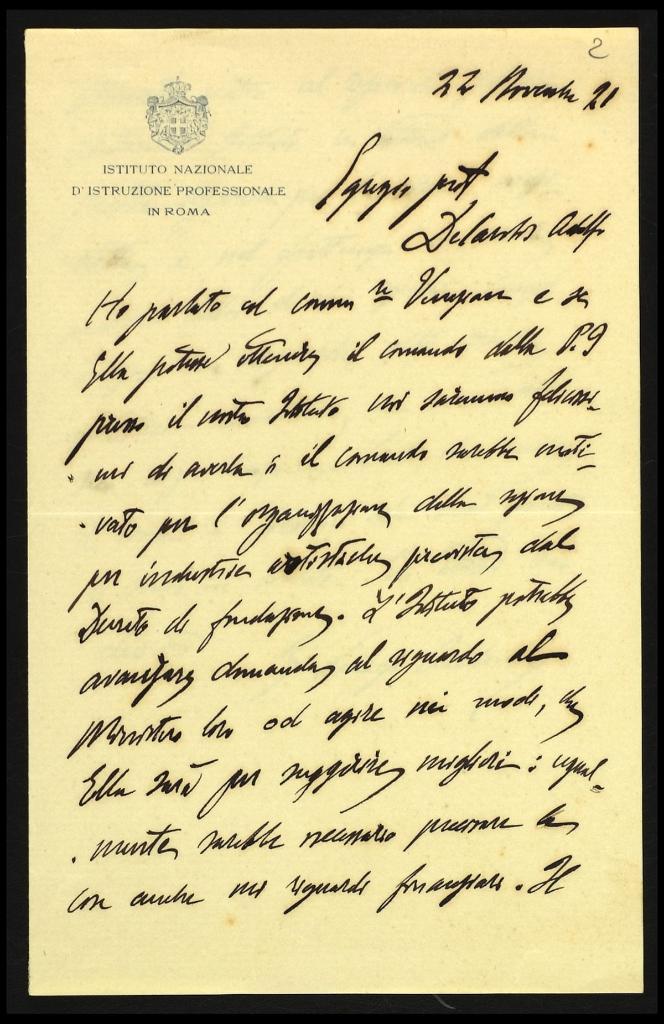 2
22 Novembre 21
ISTITUTO NAZIONALE
D'ISTRUZIONE PROFESSIONALE
IN ROMA
Egregio prof
DeCarolis Adolfo
Ho parlato col comm re e se
Ella potesse ottenere il comando dalla P.I
presso il nostro Istituto noi saremmo felicissi-
mi di averla; il comando sarebbe moti-
vato per l'organizzazione della sezione
per industrie artistiche prevista dal
Decreto di fondazione. L'Istituto potrebbe
avanzare domanda al riguardo al
Ministero loro od agire nei modi, che
Ella sarà per suggerire migliori: ugual-
mente sarebbe necessario precisare la
cosa anche nei riguardi finanziari. Il